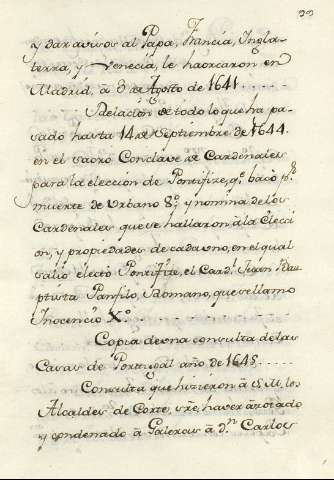 99
y dar avisos al Papa, Francia, Ingla-
terra, y Venecia, le haorcaron en
Madrid, à 8 de Agosto de 1641
Relacion de todo lo que ha pa-
sado hasta 14 de Septiembre de 1644.
en el sacro Conclave de Cardenales
para la eleccion de Pontifize, q.e bacò p.r
muerte de Urbano 8.o; y nomina de los
Cardenales que se hallaron à la Elecci
on, y propiedades de cada uno, en el qual
salio electo Pontifize, el Card.l Juan Bau
ptista Panfilo, Romano, que se llamo
Inocencio X.o
Copia de una consulta de las
Casas de Portugal año de 1648
Consulta que hizieron à S. M. los
Alcaldes de Corte, sre, haver azotado
y condenado à Galeras à d.n Carlos